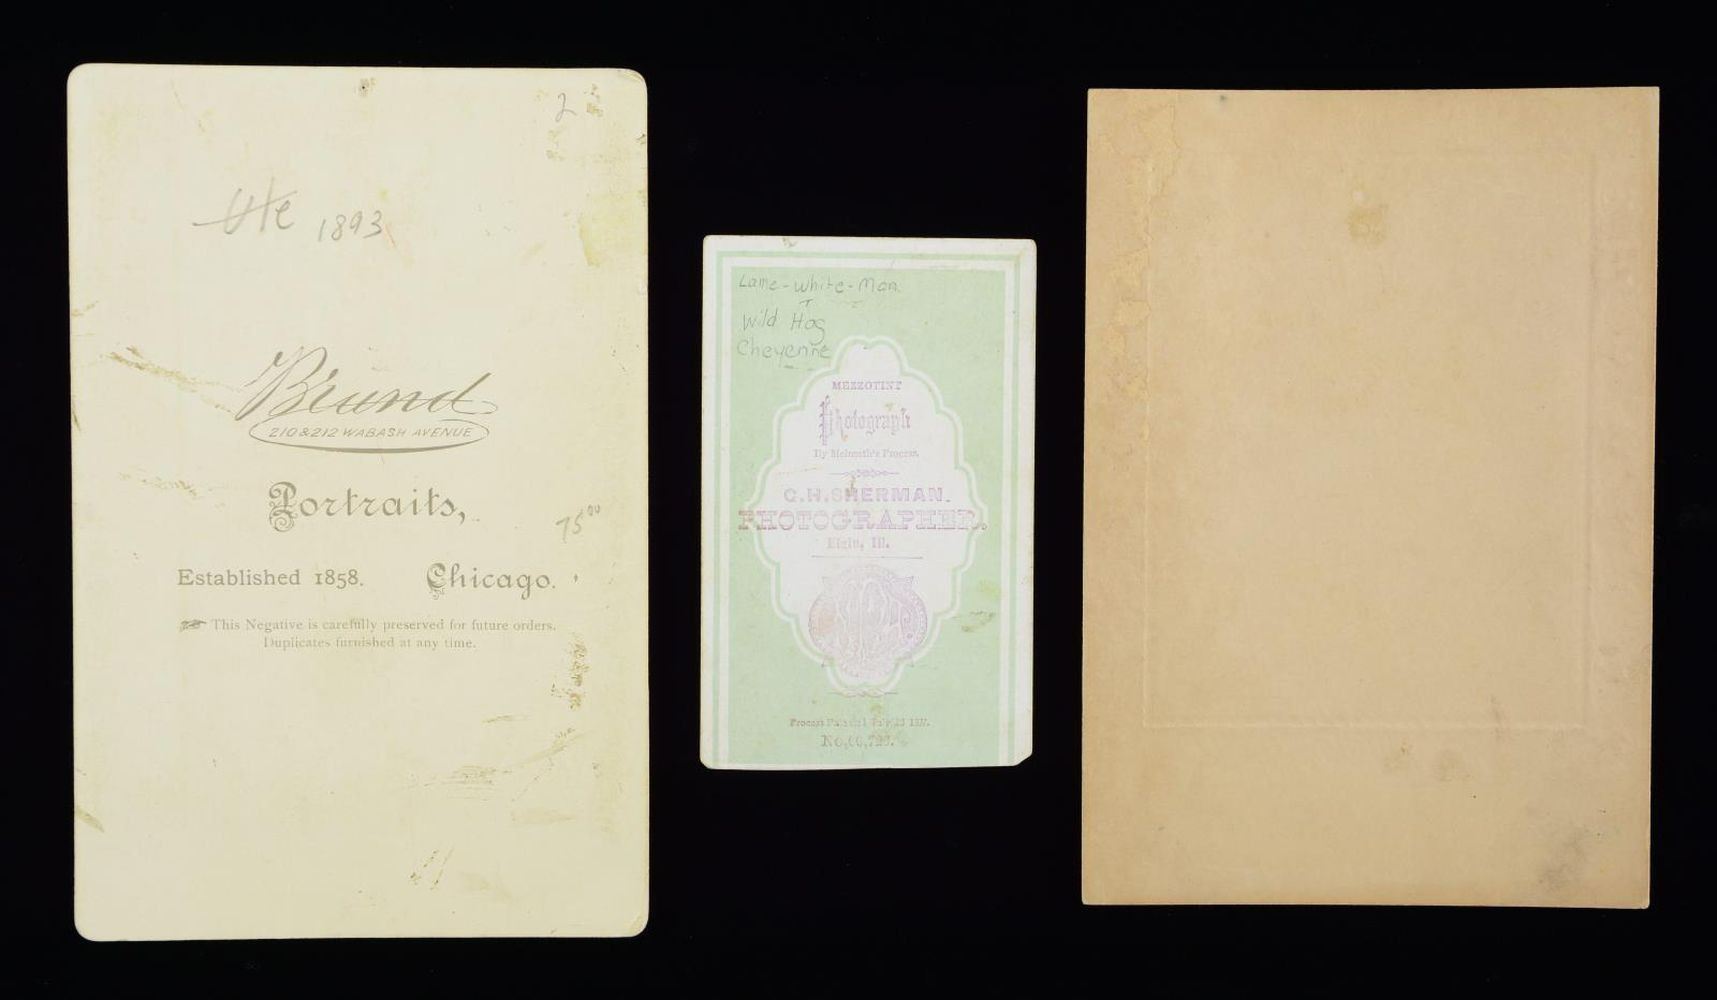 2
Ute 1893
Brand
210 & 212 WABASH AVENUE
Portraits,
75⁰⁰
Established 1858. Chicago.
This Negative is carefully preserved for future orders.
Duplicates furnished at any time.
Lame-White-Man
Wild Hog
Cheyenne
MEZZOTINT
Photograph
By Process.
G.H.SHERMAN.
PHOTOGRAPHER.
Elgin, Ill.
Process